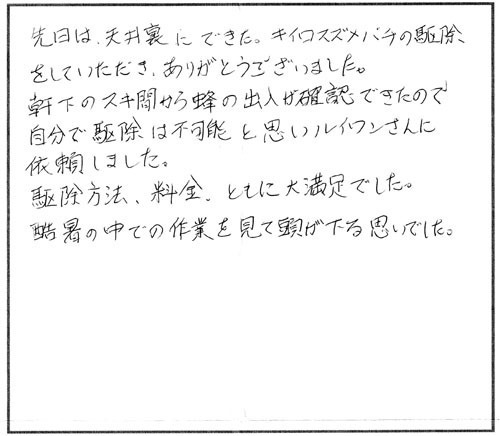 先日は、天井裏にできた。キイロスズメバチの駆除
をしていただき、ありがとうございました。
軒下のスキ間から蜂の出入が確認できたので
自分で駆除は不可能と思いルイワンさんに
依頼しました。
駆除方法、料金、ともに大満足でした。
酷暑の中での作業を見て頭が下る思いでした。